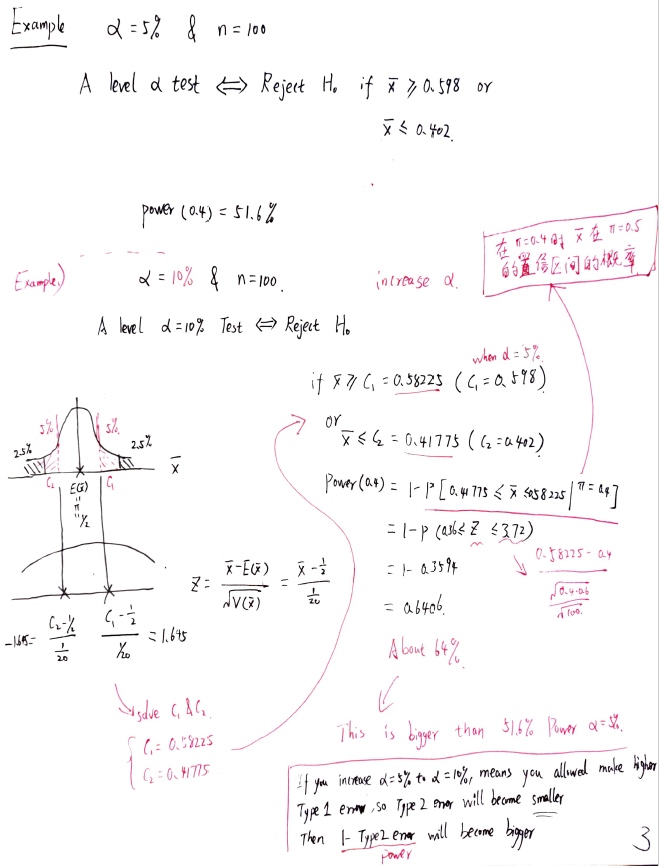 Example α = 5% & n = 100
A level α test ⟺ Reject H₀ if x̄ ⩾ 0.598 or
x̄ ≤ 0.402.
power (0.4) = 51.6%
在 π=0.4 时 x̄ 在 π=0.5
的置信区间的概率
Example) α = 10% & n = 100. increase α.
A level α = 10% Test ⟺ Reject H₀
when α = 5%.
if x̄ ⩾ C₁ = 0.58225 (C₁ = 0.598)
or
x̄ ≤ C₂ = 0.41775 (C₂ = 0.402)
5% 5%
2.5% 2.5%
x̄
C₂ E(x̄) C₁
=
π
=
1/2
Power(0.4) = 1 - P [0.41775 ≤ x̄ ≤ 0.58225 | π = 0.4]
= 1 - P (0.36 ≤ Z ≤ 3.72)
0.58225 - 0.4
√0.4·0.6
√100.
= 1 - 0.3594
= 0.6406.
About 64%.
Z = x̄ - E(x̄) / √V(x̄) = x̄ - 1/2 / 1/20
-1.645 = C₂ - 1/2 / 1/20 C₁ - 1/2 / 1/20 = 1.645
solve C₁ & C₂.
{ C₁ = 0.58225
C₂ = 0.41775
This is bigger than 51.6% Power α = 5%.
If you increase α = 5% to α = 10%, means you allowed make higher
Type 1 error, so Type 2 error will become smaller
Then 1 - Type 2 error will become bigger
power
3